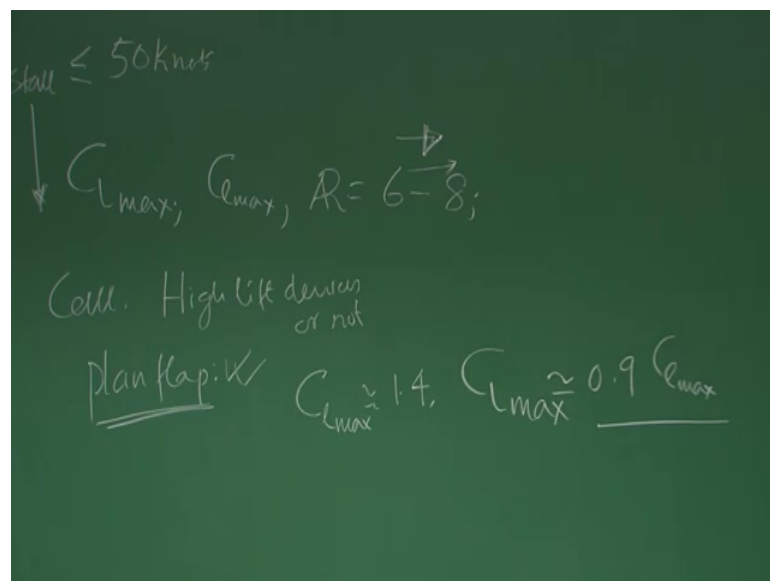 stall ≤ 50 Knots
C_Lmax, C_lmax, AR = 6 - 8;
High lift devices
or not
plan flap: W C_lmax ≈ 1.4, C_Lmax ≃ 0.9 C_lmax